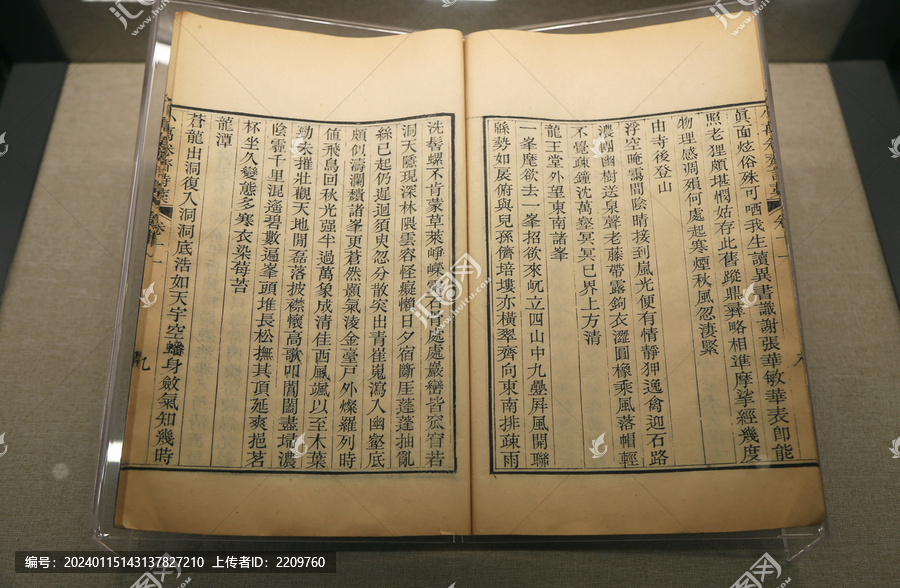 眞面炫俗殊可哂我生讀異書識謝張華敏華表卽能
照老狸頗堪憫姑存此舊蹤鼎彝略相準摩挲經幾度
物理感凋殞何處起寒煙秋風忽淒緊
由寺後登山
浮空晻靄間陰晴接到嵐光便有情靜狎逸禽迎石路
濃團幽樹送泉聲老藤帶露鉤衣澀圓橡乘風落帽輕
不覺疎鐘沈萬壑冥冥已界上方清
龍王堂外望東南諸峯
一峯麾欲去一峯招欲來屼立四山中九疊屛風開聯
緜勢如展俯與兒孫儕培塿亦橫翠齊向東南排疎雨
洗髻螺不肯蒙草萊崢嶸
處處巖巒皆孤宿若
洞天隱現深林隈雲容怪癡懶日夕宿斷厓蓬蓬抽亂
絲已起仍遲迴須臾忽分散突出青崔嵬瀉入幽壑底
頗似濤瀾豗諸峯更蒼然顥氣淩金臺戸外燦羅列時
値飛鳥回秋光强半過萬象成清佳西風颯以至木葉
勁未摧壯觀天地開磊落披襟懷高歌叩閶闔盡埽濃
陰霾千里混遙碧數遍峯頭堆長松撫其頂延爽挹茗
杯坐久變態多寒衣染莓苔
龍潭
蒼龍出洞復入洞洞底浩如天宇空蟠身斂氣知幾時
編号：20240115143137827210 上传者ID：2209760